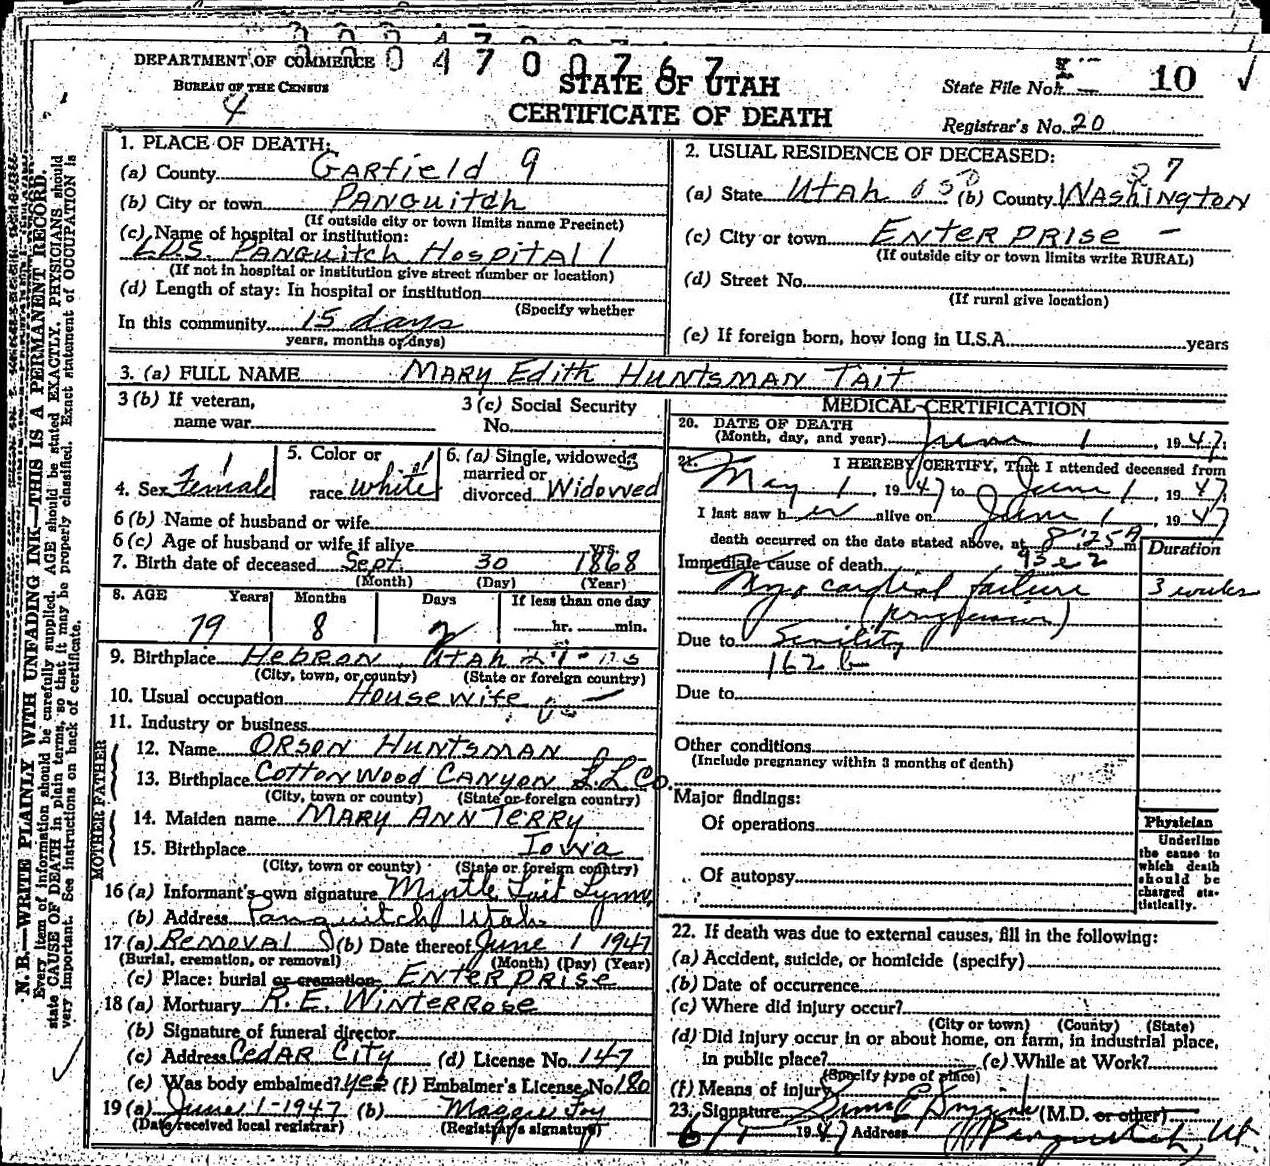 00047 00767
DEPARTMENT OF COMMERCE
BUREAU OF THE CENSUS
4
STATE OF UTAH
CERTIFICATE OF DEATH
State File No. 10
Registrar's No. 20
N. B.—WRITE PLAINLY WITH UNFADING INK—THIS IS A PERMANENT RECORD.
Every item of information should be carefully supplied. AGE should be stated EXACTLY. PHYSICIANS should
state CAUSE OF DEATH in plain terms, so that it may be properly classified. Exact statement of OCCUPATION is
very important. See instructions on back of certificate.
1. PLACE OF DEATH:
(a) County GARfield 9
(b) City or town PANGUITCH
(If outside city or town limits name Precinct)
(c) Name of hospital or institution:
L.D.S. PANGUITCH HOSPITAL 1
(If not in hospital or institution give street number or location)
(d) Length of stay: In hospital or institution
(Specify whether
In this community 15 days
years, months or days)
2. USUAL RESIDENCE OF DECEASED:
27
(a) State Utah (b) County WASHINGTON
(c) City or town ENTERPRISE —
(If outside city or town limits write RURAL)
(d) Street No.
(If rural give location)
(e) If foreign born, how long in U.S.A. years
3. (a) FULL NAME MARY Edith HUNTSMAN TAIT
3 (b) If veteran,
name war
3 (c) Social Security
No.
4. Sex Female
5. Color or
race White
6. (a) Single, widowed,
married or
divorced Widowed
6 (b) Name of husband or wife
6 (c) Age of husband or wife if alive yrs.
7. Birth date of deceased Sept. 30 1868
(Month) (Day) (Year)
8. AGE Years Months Days If less than one day
79 8 2 hr. min.
9. Birthplace HEBRON, UTAH
(City, town, or county) (State or foreign country)
10. Usual occupation Housewife
11. Industry or business
FATHER
12. Name ORSON HUNTSMAN
13. Birthplace COTTONWOOD CANYON S.L. Co.
(City, town or county) (State or foreign country)
MOTHER
14. Maiden name MARY ANN TERRY
15. Birthplace Iowa
(City, town or county) (State or foreign country)
16 (a) Informant's own signature Myrtle Tait
(b) Address Panguitch, Utah
17 (a) Removal (b) Date thereof June 1 1947
(Burial, cremation, or removal) (Month) (Day) (Year)
(c) Place: burial or cremation ENTERPRISE
18 (a) Mortuary R. E. WINTERROSE
(b) Signature of funeral director
(c) Address CEDAR CITY (d) License No. 147
(e) Was body embalmed? yes (f) Embalmer's License No. 180
19 (a) June 1-1947 (b) Maggie Foy
(Date received local registrar) (Registrar's signature)
MEDICAL CERTIFICATION
20. DATE OF DEATH
(Month, day, and year) June 1, 1947
21. I HEREBY CERTIFY, That I attended deceased from
May 1, 1947 to June 1, 1947
I last saw her alive on June 1, 1947
death occurred on the date stated above, at 8:25 A m
Duration
Immediate cause of death 93 e 2
Myocardial failure 3 weeks
Due to Senility
162 b
Due to
Other conditions
(Include pregnancy within 3 months of death)
Major findings:
Of operations
Of autopsy
Physician
Underline
the cause to
which death
should be
charged sta-
tistically.
22. If death was due to external causes, fill in the following:
(a) Accident, suicide, or homicide (specify)
(b) Date of occurrence
(c) Where did injury occur?
(City or town) (County) (State)
(d) Did injury occur in or about home, on farm, in industrial place,
in public place? (e) While at Work?
(Specify type of place)
(f) Means of injury
23. Signature (M.D. or other)
6/1 1947 Address Panguitch, Ut.